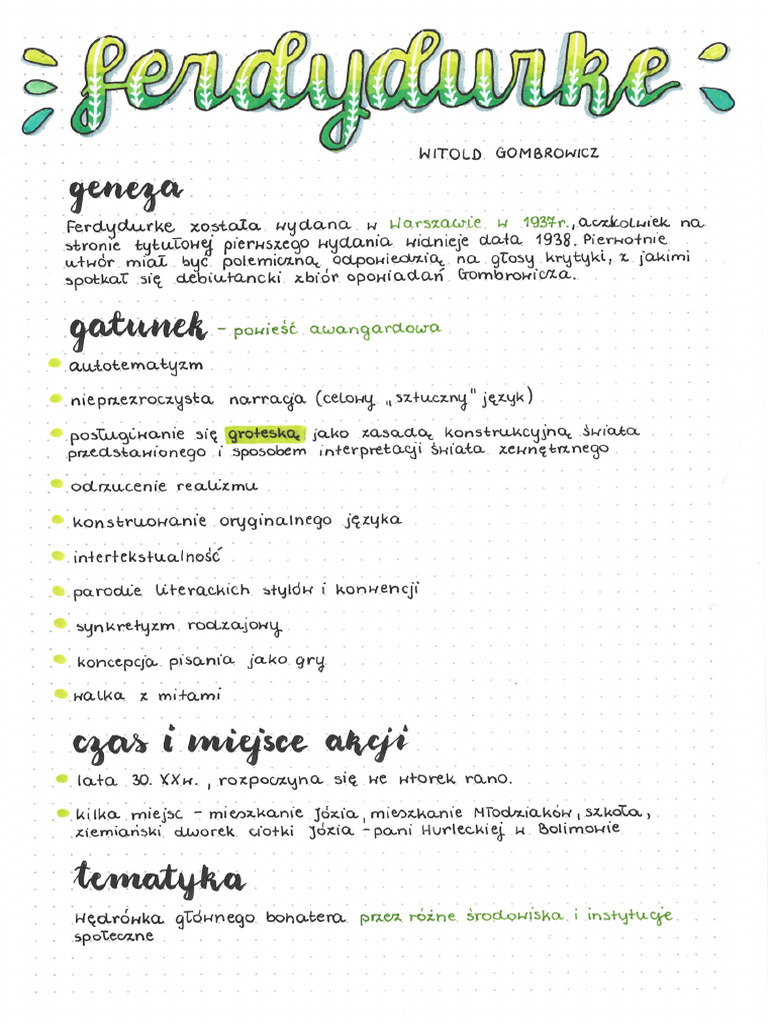 ferdydurke
WITOLD GOMBROWICZ
geneza
Ferdydurke została wydana w Warszawie w 1937r., aczkolwiek na
stronie tytułowej pierwszego wydania widnieje data 1938. Pierwotnie
utwór miał być polemiczną odpowiedzią na głosy krytyki, z jakimi
spotkał się debiutancki zbiór opowiadań Gombrowicza.
gatunek - powieść awangardowa
autotematyzm
nieprzezroczysta narracja (celowy „sztuczny" język)
posługiwanie się groteską jako zasadą konstrukcyjną świata
przedstawionego i sposobem interpretacji świata zewnętrznego
odrzucenie realizmu
konstruowanie oryginalnego języka
intertekstualność
parodie literackich stylów i konwencji
synkretyzm rodzajowy
koncepcja pisania jako gry
walka z mitami
czas i miejsce akcji
lata 30. XXw., rozpoczyna się we wtorek rano.
kilka miejsc - mieszkanie Józia, mieszkanie Młodziaków, szkoła,
ziemiański dworek ciotki Józia - pani Hurleckiej w Bolimowie
tematyka
wędrówka głównego bohatera przez różne środowiska i instytucje
społeczne